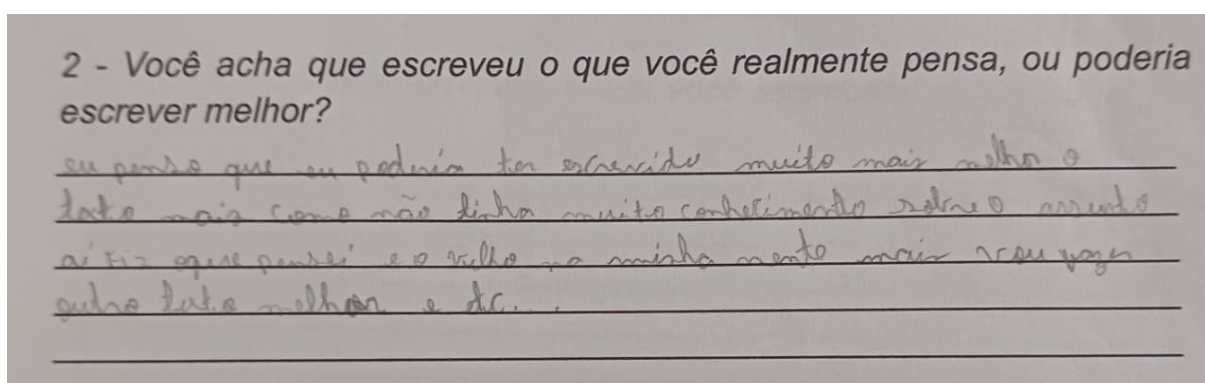 2 - Você acha que escreveu o que você realmente pensa, ou poderia
escrever melhor?
eu penso que eu poderia ter escrevido muito mais melhor o
texto mais como não tinha muito conhecimento sobre o assunto
ai fiz oque pensei e o na minha mente mais vou
outro texto melhor e etc..